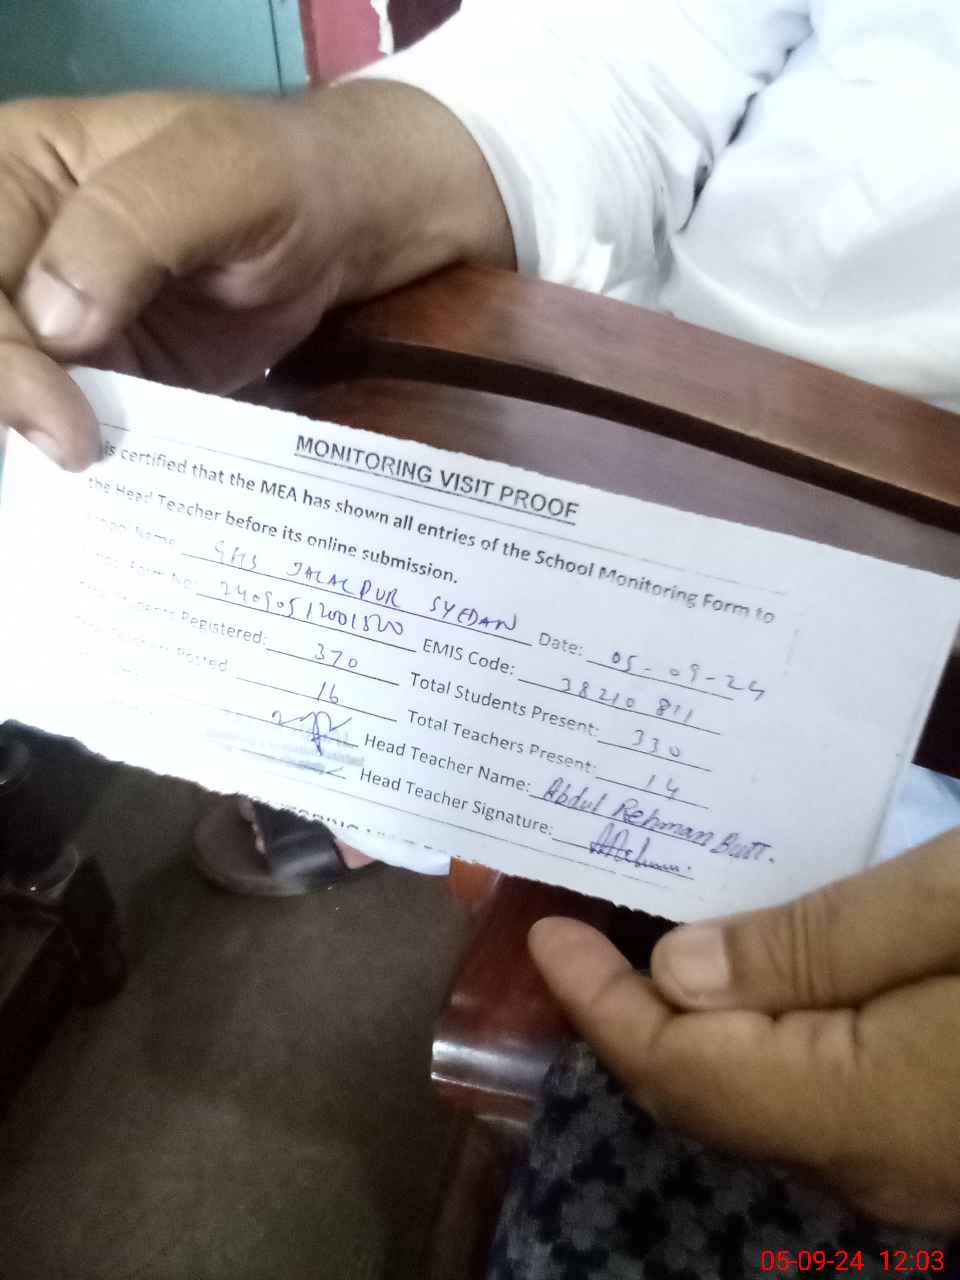 MONITORING VISIT PROOF
is certified that the MEA has shown all entries of the School Monitoring Form to
the Head Teacher before its online submission.
Name GHS JALALPUR SYEDAN Date: 05-09-24
Form No: EMIS Code: 38210811
Registered: 370 Total Students Present: 330
Posted 16 Total Teachers Present: 14
Head Teacher Name: Abdul Rehman Butt.
Head Teacher Signature:
05-09-24 12:03